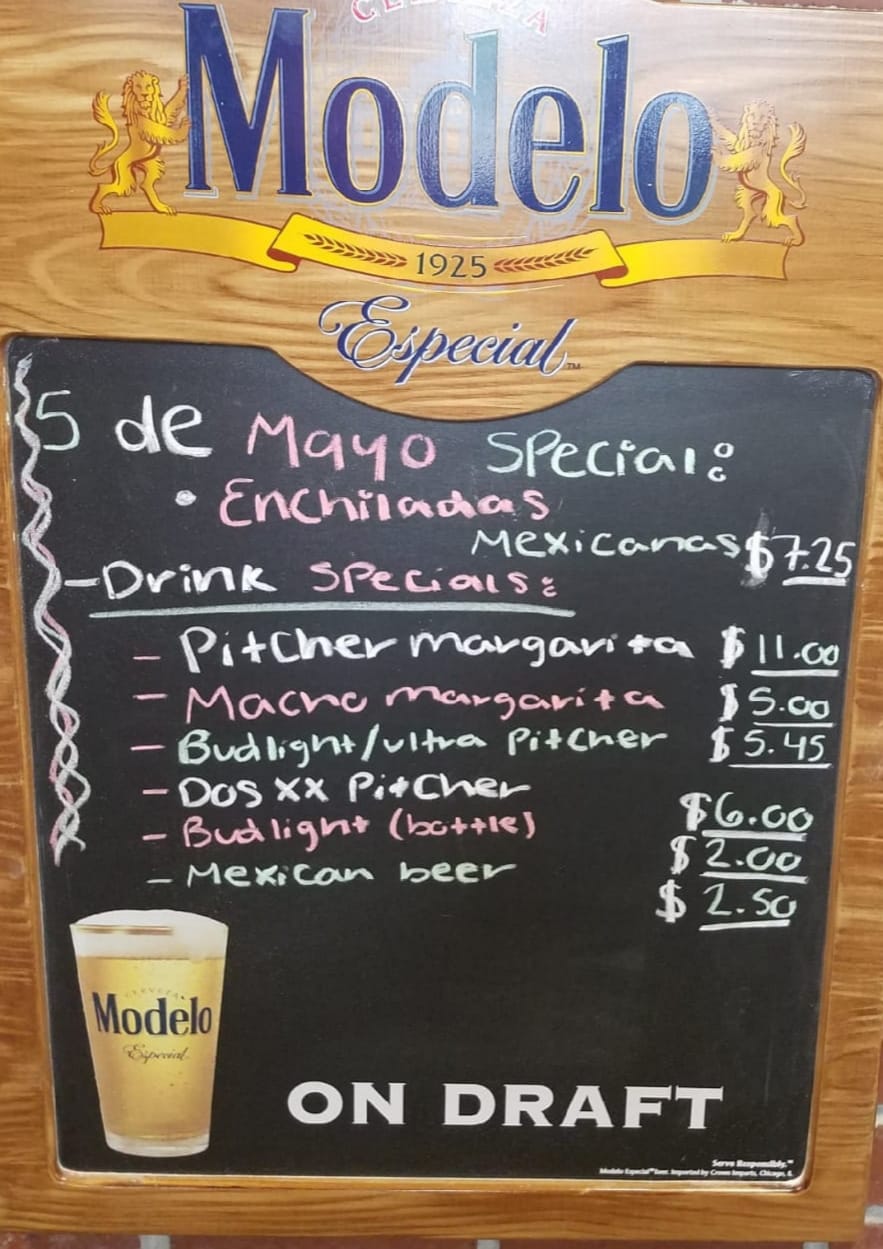 CERVEZA
Modelo
1925
Especial™
5 de Mayo Special:
• Enchiladas
Mexicanas $7.25
- Drink Specials:
- Pitcher margarita $11.00
- Macho margarita $5.00
- Budlight/ultra Pitcher $5.45
- Dos xx Pitcher $6.00
- Budlight (bottle) $2.00
- Mexican beer $2.50
CERVEZA
Modelo
Especial
ON DRAFT
Serve Responsibly.™
Modelo Especial™ Beer. Imported by Crown Imports, Chicago, IL